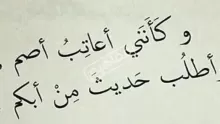 و كَأَنَّني أعاتِبُ أصم
وأطلُب حَديثَ مِنْ أبكم